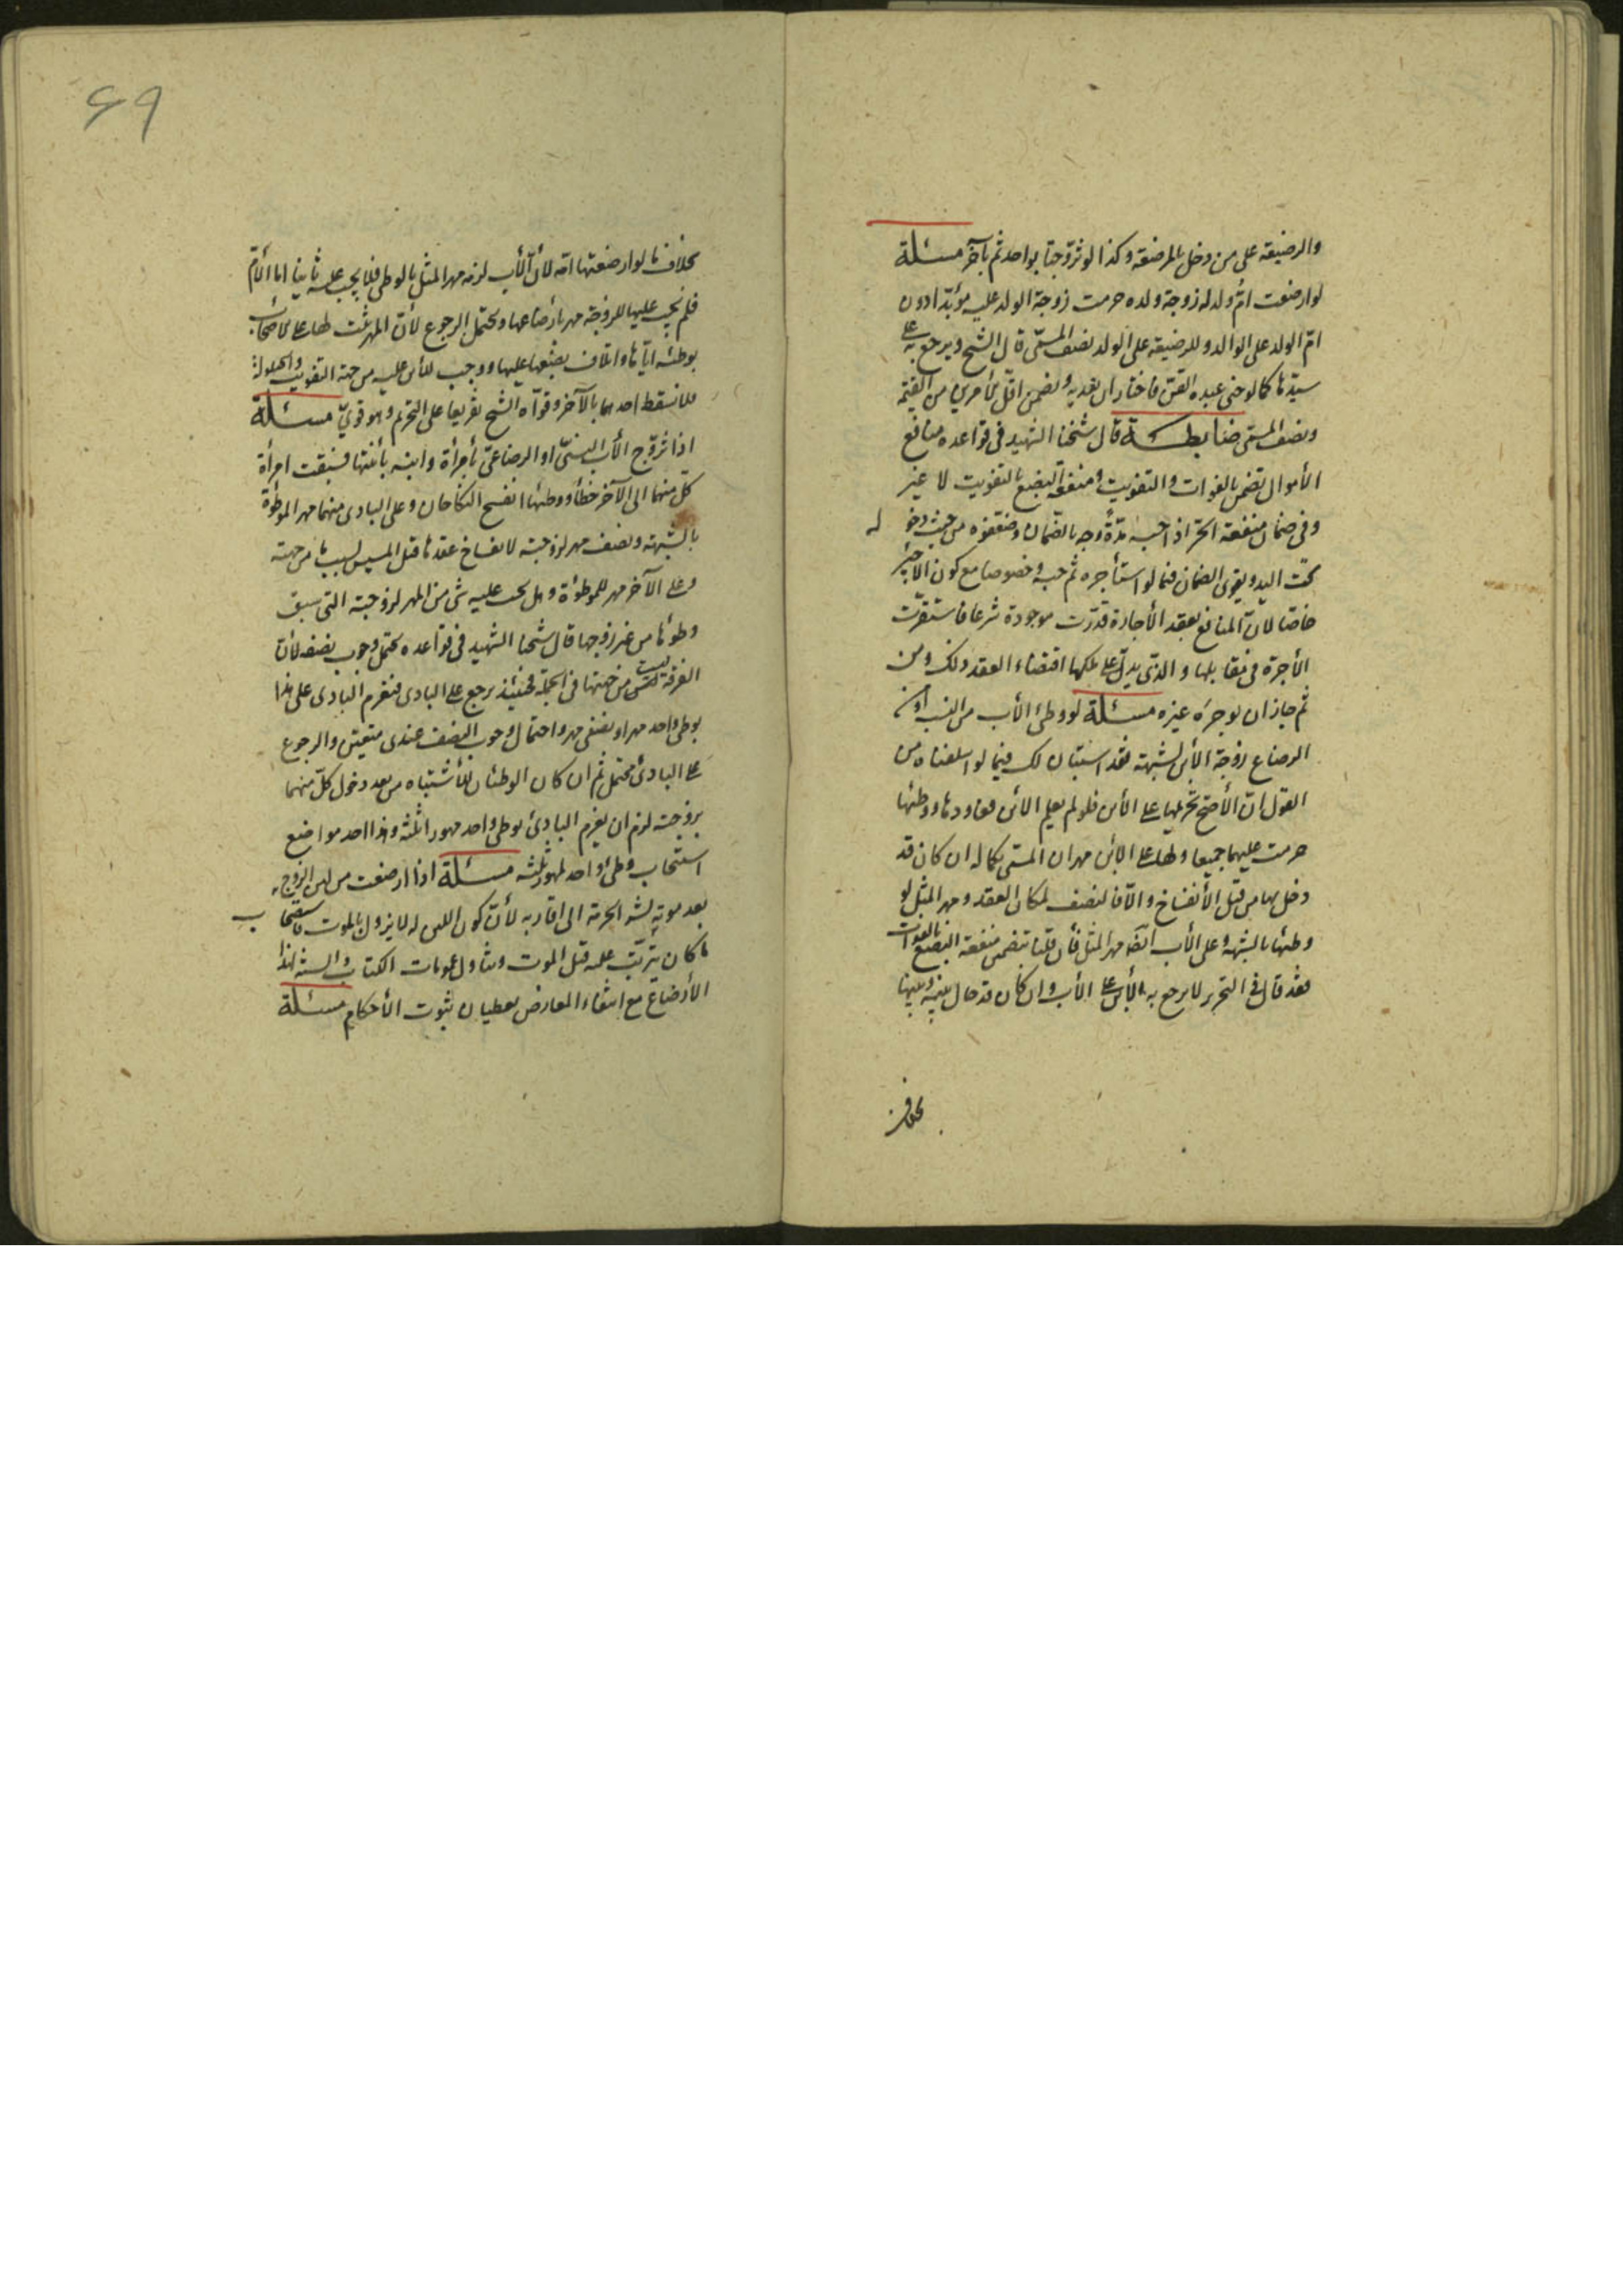 والرضيعة على من دخل بالمرضعة وكذا لو تزوّجتا بواحد ثم بآخر مسئلة
لو ارضعت امّ ولد له زوجة ولده حرمت زوجة الولد عليه مؤبّدا دون
امّ الولد على الوالد وللرضيعة على الولد نصف المسمّى قال الشيخ ويرجع به على
سيّدها كما لو جنى عبده القنّ فاختار ان يفديه ويضمن اقلّ الأمرين من القيمة
ونصف المسمّى ضابطة قال شيخنا الشهيد فى قواعده منافع
الأموال تضمن بالفوات والتفويت ومنفعة البضع بالتفويت لا غير
وفى ضمان منفعة الحرّ اذا حبسه مدّة وجه بالضمان وضعفوه من حيث دخوله
تحت اليد ويقوى الضمان فيما لو استأجره ثم حبسه وخصوصا مع كون الأجير
خاصّا لأنّ المنافع بعقد الأجارة قدّرت موجودة شرعا فاستقرّت
الأجرة فى مقابلها والذى يدلّ على ملكها اقتضاء العقد ذلك ومن
ثم جاز ان يوجره غيره مسئلة لو وطئ الأب من النسب او
الرضاع زوجة الأبن لشبهة فقد استبان لك فيما اسلفناه من
القول انّ الأصح تحريمها على الأبن فلو لم يعلم الأبن فعاودها ووطئها
حرمت عليهما جميعا ولها على الأبن مهران المسمّى بكماله ان كان قد
دخل بها من قبل الأنفساخ والّا فالنصف لمكان العقد ومهر المثل لو
وطئها بالشبهة وعلى الأب ايضا مهر المثل فأن قلنا تضمن منفعة البضع بالفوات
فقد قال فى التحرير لا يرجع به الأبن على الأب وان كان قد حال بينه وبينها
بخلاف
69
بخلاف ما لو ارضعتها امّه لأنّ الأب لزمه مهر المثل بالوطى فلا يجب عليه ثانيا اما الأمّ
فلم يجب عليها للزوجة مهر بأرضاعها ويحتمل الرجوع لأنّ المهر ثبت لها على
بوطئه ايّاها واتلاف بضعها عليها ووجب للأبن عليه من جهة التفويت والحيلولة
فلا يسقط احدهما بالآخر وقوّاه الشيخ تفريعا على التحريم وهو قوىّ مسئلة
اذا تزوّج الأب النسبىّ او الرضاعىّ بأمرأة وابنه بأبنتها فسبقت امرأة
كلّ منهما الى الآخر خطأ ووطئها انفسخ النكاحان وعلى البادى منهما مهر الموطوءة
بالشبهة ونصف مهر لزوجته لانفساخ عقدها قبل المسيس بسبب من جهته
وعلى الآخر مهر للموطوءة وهل يجب عليه شى من المهر لزوجته التى سبق
وطؤها من غير زوجها قال شيخنا الشهيد فى قواعده يحتمل وجوب نصفه لأنّ
الفرقة ليست من جهتها فى الجملة فحينئذ يرجع على البادى فيغرم البادى على هذا
بوطى واحد مهرا ونصفى مهر واحتمال وجوب النصف عندى متعيّن والرجوع
على البادئ محتمل ثم ان كان الوطئان للأشتباه من بعد دخول كلّ منهما
بزوجته لزم ان يغرم البادئ بوطى واحد مهورا ثلثة وهذا احد مواضع
استحاب وطئ واحد لمهور ثلثة مسئلة اذا ارضعت من لبن الزوج
بعد موته نشر الحرمة الى اقاربه لأنّ كون اللبن له لا يزول بالموت فاستصحاب
ما كان يترتّب عليه قبل الموت وتناول عمومات الكتاب والسنة لهذا
الأرضاع مع انتفاء المعارض يعطيان ثبوت الأحكام مسئلة